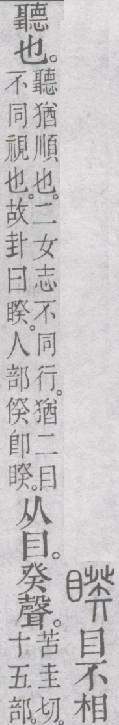 睽 目不相
聽也。聽猶順也。二女志不同行。猶二目
不同視也。故卦曰睽。人部㑫卽睽。
从目。癸聲。苦圭切。
十五部。